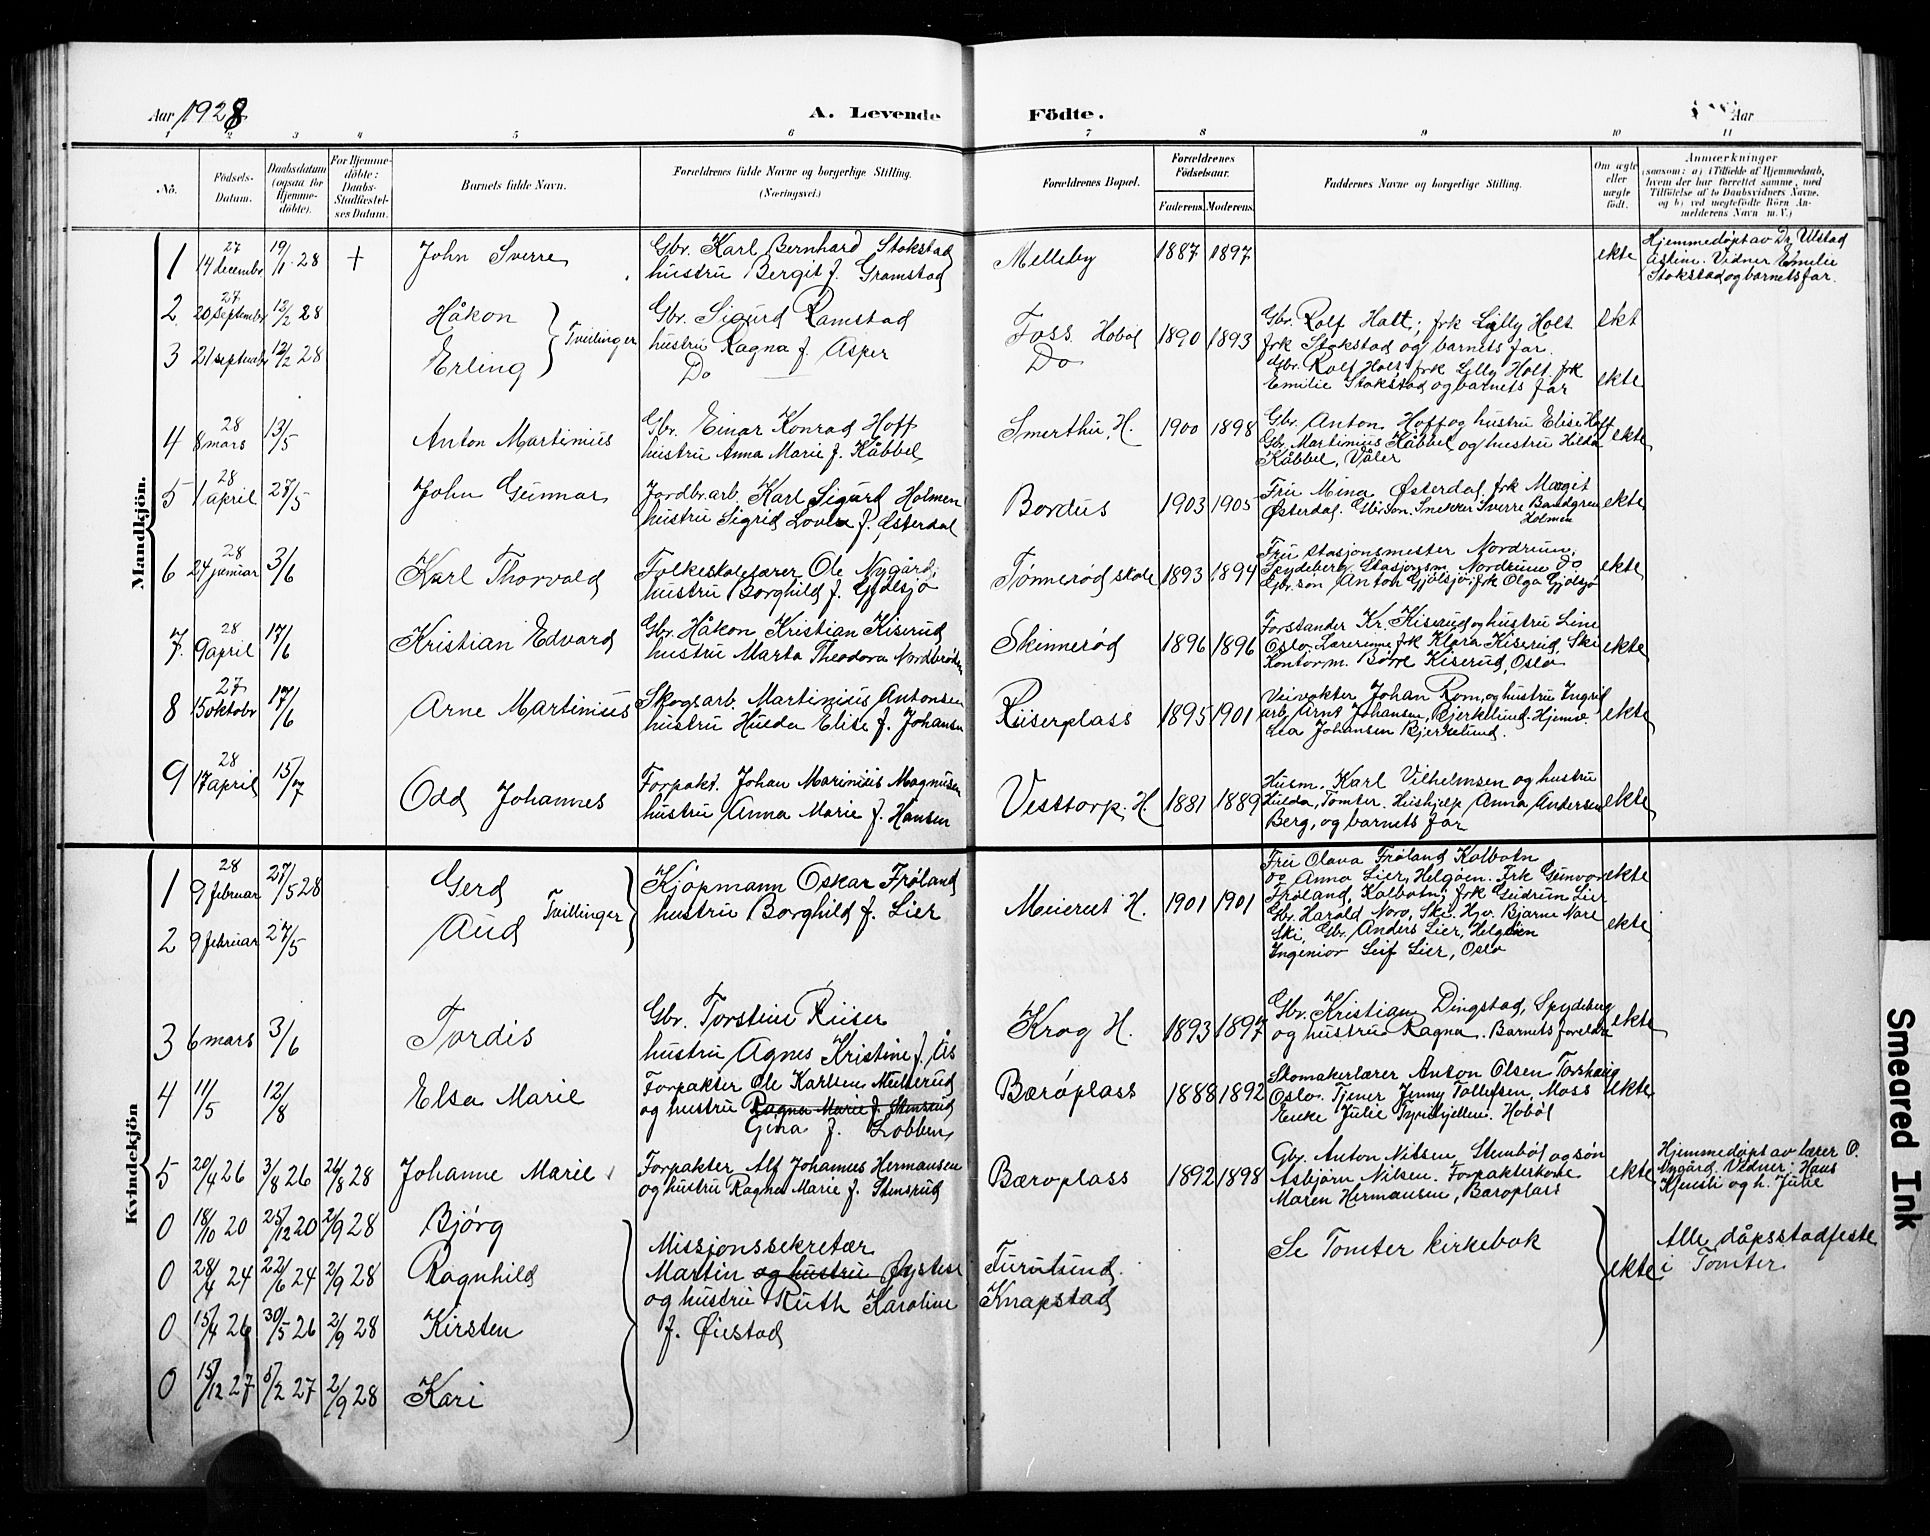 Aar 1928
A. Levende
Födte.
Aar
1 2 3 4 5 6 7 8 9 10 11
No.
Födsels-Datum.
Daabsdatum (ogsaa for Hjemme-döbte).
For Hjemme-döbte: Daabs-Stadfæstel-ses Datum.
Barnets fulde Navn.
Forældrenes fulde Navne og borgerlige Stilling. (Næringsvei.)
Forældrenes Bopæl.
Forældrenes Födselsaar.
Faderens. Moderens.
Faddernes Navne og borgerlige Stilling.
Om ægte eller uægte födt.
Anmærkninger
(saasom: a) i Tilfælde af Hjemmedaab, hvem der har forrettet samme, med Tilföielse af to Daabsvidners Navne. og b) ved uægtefödte Börn An-melderens Navn m. V.)
Mandkjön.
1 27 14 decembr 19/1 28 + John Sverre Gbr. Karl Bernhard Stokstad
hustru Bergit f. Gramstad Melleby 1887 1897 ekte Hjemmedøpt av Dr. Ulstad
Vidner Emelie
Stokstad og barnets far.
2 27 20 septembr 12/2 28 Håkon Tvillinger Gbr. Sigurd Ramstad
hustru Ragna f. Asper Foss Hobøl 1890 1893 Gbr. Rolf Holt; frk Lilly Holt
frk Stokstad og barnets far. ekt
3 21 septembr 12/2 28 Erling Do Do Gbr. Rolf Holt frk Lilly Holt. frk
Emilie Stokstad og barnets far ekte
4 28 8 mars 13/5 Anton Martinius Gbr. Einar Konrad Hoff
hustru Anna Marie f. Kåbbel Smerthu, H. 1900 1898 Gbr. Anton Hoff og hustru Elise Hoff
Gbr. Martinius Kåbbel og hustru Hilda
Kåbbel, Våler ekte
5 28 1 april 27/5 John Gunnar Jordbr.arb. Karl Sigurd Holmen
hustru Sigrid Lovise f. Østerdal Bordus 1903 1905 Fru Mina Østerdal, frk Margit
Østerdal. Gbrsøn. Snekker Sverre
Holmen ekte
6 28 24 januar 3/6 Karl Thorvald Folkeskolelærer Ole Nygård,
hustru Borghild f. Gjølsjø Tønnerød skole 1893 1894 Fru stasjonsmester Nordrum,
Spydeberg, Stasjonsm. Nordrum do
Gbr.søn Anton Gjølsjø, frk Olga Gjølsjø ekte
7. 28 9 april 17/6 Kristian Edvard Gbr. Håkon Kristian Kiserud
hustru Marta Theodora Nordbrøden Skinnerød 1896 1896 Forstander Kr. Kiserud og hustru Line
Oslo. Lærerinne frk Klara Kiserud, Ski
Kontorm. Børre Kiserud, Oslo ekte
8 27 15 oktobr 17/6 Arne Martinius Skogsarb. Martinius Antonsen
hustru Hulda Elise f. Johansen Riiserplass 1895 1901 Veivokter Johan Rom, og hustru Ingrid
arb. Arnt Johansen, Bjerkelund. Hjemv.
Lea Johansen Bjerkelund. ekte
9 28 17 april 15/7 Odd Johannes Forpakt. Johan Marinius Magnusen
hustru Anna Marie f. Hansen Vesttorp. H. 1881 1889 Husm. Karl Vilhelmsen og hustru
Hulda, Tomter. Hushjelp Anna Andersen
Berg, og barnets far ekte
Kvindekjön
1 28 9 februar 27/5 28 Gerd Tvillinger Kjøpmann Oskar Frøland
hustru Borghild f. Lier Meieriet H. 1901 1901 Fru Olava Frøland Kolbotn
do Anna Lier, Helgøen. Frk Gunvor
Frøland, Kolbotn; frk Gudrun Lier ekte
2 9 februar 27/5 Aud Gbr. Harald Nore, Ski. Hjv. Bjarne Nore
Ski, Gbr. Anders Lier, Helgøen
Ingeniør Leif Lier, Oslo ekte
3 6 mars 3/6 Tordis Gbr. Torstein Riiser
hustru Agnes Kristine f. Ås Krog H. 1893 1897 Gbr. Kristian Dingstad, Spydeberg
og hustru Ragna. Barnets foreldre ekte
4 11/5 12/8 Elsa Marie Forpakter Ole Karlsen
og hustru Ragna Marie f. Stensrud
Gina f. Lobben Bærøplass 1888 1892 Skomakerlærer Anton Olsen Torshaug
Oslo. Tjener Jenny Tollefsen, Moss
Enke Julie Tyrihjellen. Hobøl ekte
5 20/4 26 3/8 26 26/8 28 Johanne Marie Forpakter Alf Johannes Hermansen
og hustru Ragna Marie f. Stensrud Bærøplass 1892 1898 Gbr. Anton Nilsen Stenbøl og søn
Asbjørn Nilsen. Forpakterkone
Maren Hermansen, Bærøplass ekte Hjemmedøpt av lærer O.
Nygård. Vidner: Hans
og h. Julie
0 18/10 20 25/12 20 2/9 28 Bjørg Missjonssekretær
0 28/4 24 22/6 24 2/9 28 Ragnhild Martin og hustru Øystese
0 15/4 26 30/5 26 2/9 28 Kirsten og hustru Ruth Karoline
f. Øiestad
0 15/12 27 5/2 27 2/9 28 Kari
Furulund.
Knapstad
Se Tomter kirkebok
ekte
Alle dåpsstadfeste
i Tomter
Smeared Ink